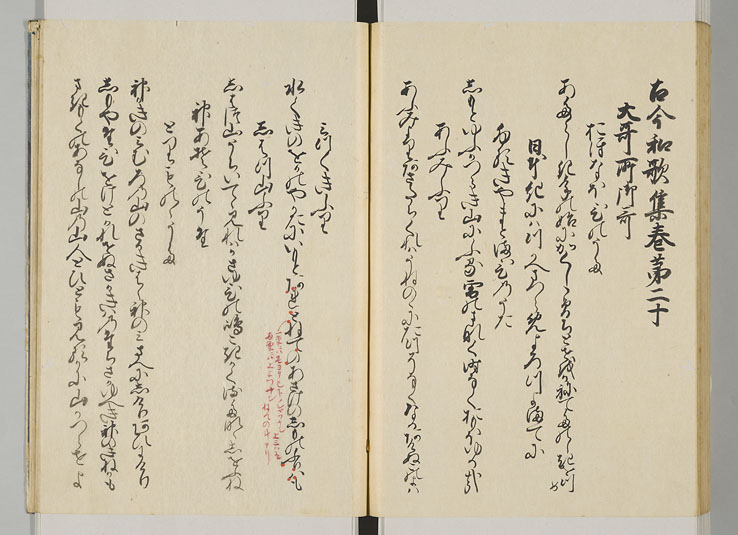 古今和歌集巻第二十
大哥所御哥
おほなほひのうた
あたらしき年の始にかくしこそちとせをかねてたのしきをつめ
日本紀にはつかへまつらめよろつ世まてに
ふるきやまとまひのうた
しもとゆふかつらき山にふる雪のまなく時なくおもほゆる哉
あふみふり
あふみよりあさたちくれはうねのゝにたつそなくなるあけぬこのよは
みつくきふり
水くきのをかのやかたにいもとあれとねてのあさけのしものふりはも
しはつ山ふり
しはつ山うちいてゝ見れはかさゆひの嶋こきかくるたなゝしをふね
神あそひのうた
とりものゝうた
神かきのみむろの山のさかきはゝ神のみまへにしけりあひにけり
しもやたひをけとかれせぬさかきはのたちさかゆへき神のきねかも
まきもくのあなしの山の山人とひとも見るかに山かつらせよ